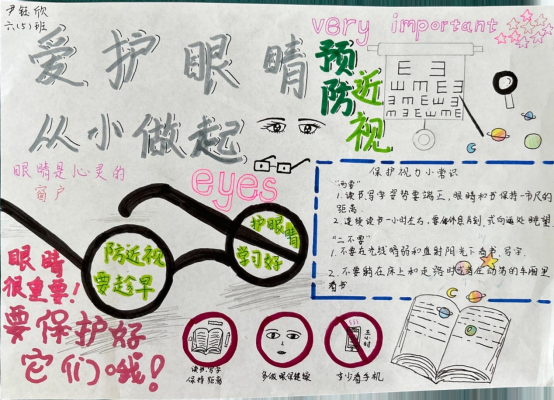 尹钰欣
六(5)班
very important
爱护眼睛
从小做起
预防近视
eyes
眼睛是心灵的
窗户
保护视力小常识
"两要"
1.读书、写字姿势要端正,眼睛和书保持一市尺的
距离
2.连续读书一小时左右,要休息片刻,或向远处眺望
"二不要"
1.不要在光线暗弱和直射阳光下看书、写字.
2.不要躺在床上和走路时或在动荡的车厢里
看书.
防近视
要趁早
护眼睛
学习好
眼睛
很重要!
要保护好
它们哦!
读书、写字
保持距离
多做眼保健操
少看手机